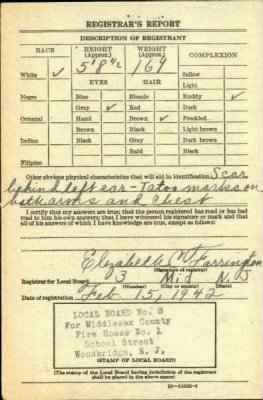 REGISTRAR'S REPORT
DESCRIPTION OF REGISTRANT
RACE HEIGHT (Approx.) WEIGHT (Approx.) COMPLEXION
5' 8 1/2 169 Sallow
White ✓ EYES HAIR Light
Negro Blue Blonde Ruddy ✓
Gray ✓ Red Dark
Oriental Hazel Brown ✓ Freckled
Brown Black Light brown
Indian Black Gray Dark brown
Bald Black
Filipino
Other obvious physical characteristics that will aid in identification Scar
behind left ear - Tatoo marks on
both arms and Chest
I certify that my answers are true; that the person registered has read or has had
read to him his own answers; that I have witnessed his signature or mark and that
all of his answers of which I have knowledge are true, except as follows:
Elizabeth C Farrington
(Signature of registrar)
Registrar for Local Board 3 Mid N. J
(Number) (City or county) (State)
Date of registration Feb 15, 1942
LOCAL BOARD No. 3
For Middlesex County
Fire House No. 1
School Street
Woodbridge, N. J.
(STAMP OF LOCAL BOARD)
(The stamp of the Local Board having jurisdiction of the registrant
shall be placed in the above space)